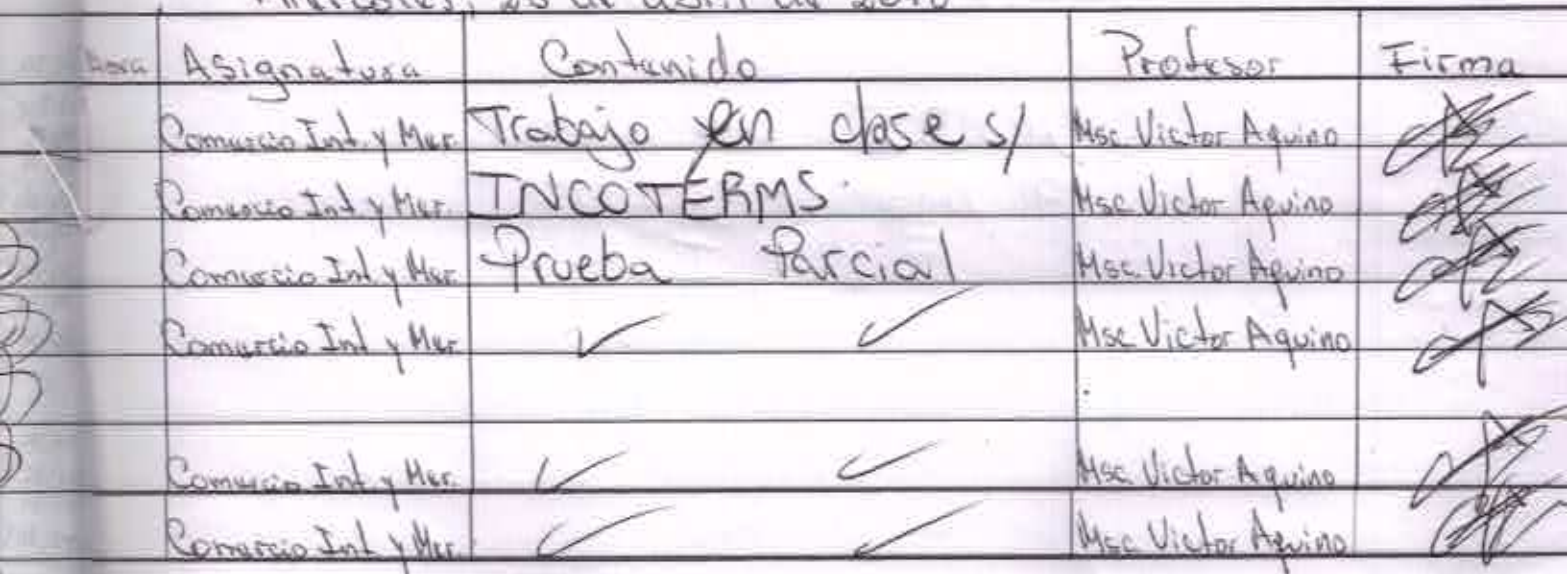 Asignatura Contenido Profesor Firma
Comercio Int. y Mer. Trabajo en clase s/ Msc. Victor Aquino
Comercio Int. y Mer. INCOTERMS. Msc. Victor Aquino
Comercio Int. y Mer. Prueba Parcial Msc. Victor Aquino
Comercio Int. y Mer. ✓ ✓ Msc. Victor Aquino
Comercio Int. y Mer. ✓ ✓ Msc. Victor Aquino
Comercio Int. y Mer. ✓ ✓ Msc. Victor Aquino